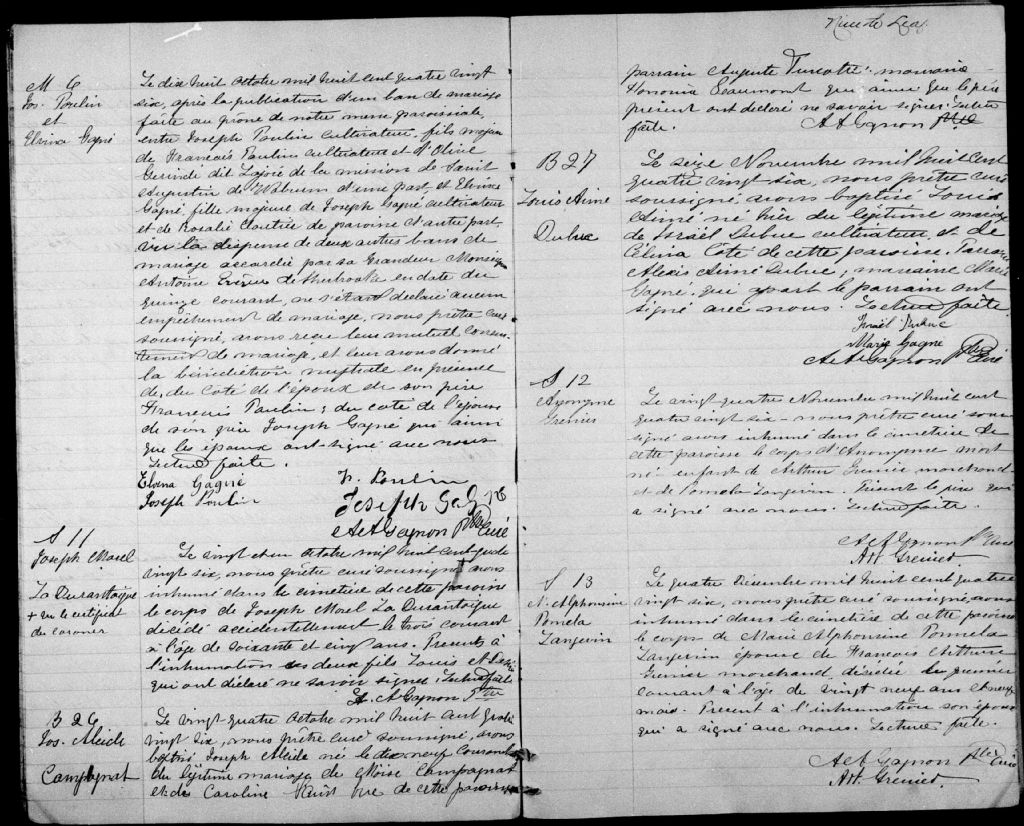 M 6
Jos. Poulin
et
Elvina Gagné
Le dix huit octobre mil huit cent quatre vingt
six, après la publication d'un ban de mariage
faite au prone de notre messe paroissiale,
entre Joseph Poulin cultivateur, fils majeur
de Francois Poulin cultivateur et d'Olive
dit Lajoie de la mission de Saint
Augustin de Woburn d'une part, et Elvina
Gagné, fille majeure de Joseph Gagné cultivateur
et de Rosalie Cloutier de paroisse d'autre part
vu la dispense de deux autres bans de
mariage accordée par sa Grandeur Monseigneur
Antoine Evêque de Sherbrooke en date du
quinze courant, ne s'étant déclaré aucun
empêchement de mariage, nous prêtre curé
soussigné, avons recu leur mutuel consen-
tement de mariage, et leur avons donné
la bénédiction nuptiale en présence
de, du coté de l'époux de son père
Francois Poulin; du cote de l'épouse
de son père Joseph Gagné qui ainsi
que les époux ont signé avec nous
Lecture faite.
Elvina Gagné
Joseph Poulin
F. Poulin
Joseph Gag
A et A Gagnon Ptre Curé
S 11
Joseph Morel
La Durantaique
+ vu le certificat
du coroner
Le vingt et un octobre mil huit cent quatre
vingt six, nous prêtre curé soussigné avons
inhumé dans le cimetière de cette paroisse
le corps de Joseph Morel La Durantaique
décédé accidentellement le trois courant
à l'âge de soixante et cinq ans. Présents à
l'inhumation ses deux fils Louis et
qui ont déclaré ne savoir signer. Lecture faite
A Gagnon Ptre
B 26
Jos. Alcide
Campagnat
Le vingt quatre octobre mil huit cent quatre
vingt six, nous prêtre curé soussigné, avons
baptisé Joseph Alcide né le dix neuf courant
du légitime mariage de Moïse Campagnat
et de Caroline de cette paroisse
parrain Auguste Turcotte; marraine
Honoria Beaumont qui ainsi que le père
présent ont déclaré ne savoir signer. Lecture
faite.
A A Gagnon Ptre
B 27
Louis Aimé
Dubuc
Le seize Novembre mil huit cent
quatre vingt six, nous prêtre curé
soussigné, avons baptisé Louis
Aimé né hier du légitime mariage
de Israël Dubuc cultivateur et de
Célina Coté de cette paroisse. Parrain
Alexis Aimé Dubuc; marraine Marie
Gagné. qui apart le parrain ont
signé avec nous. Lecture faite.
Israël Dubuc
Marie Gagné
A et A Gagnon Ptre Curé
S 12
Anonyme
Grenier
Le vingt quatre Novembre mil huit cent
quatre vingt six - nous prêtre curé sous-
signé avons inhumé dans le cimetière de
cette paroisse le corps d'Anonyme mort
né enfant de Arthur Grenier marchand
et de Pomela Langevin. Présent le père qui
a signé avec nous. Lecture faite.
A et A Gagnon Ptre Curé
Art. Grenier
S 13
M. Alphonsine
Pomela
Langevin
Le quatre Décembre mil huit cent quatre
vingt six, nous prêtre curé soussigné, avons
inhumé dans le cimetière de cette paroisse
le corps de Marie Alphonsine Pomela
Langevin épouse de Francois Arthur
Grenier marchand, décédée du premier
courant à l'age de vingt neuf ans et neuf
mois. Présent à l'inhumation son époux
qui a signé avec nous. Lecture faite.
A et A Gagnon Ptre Curé
Art. Grenier